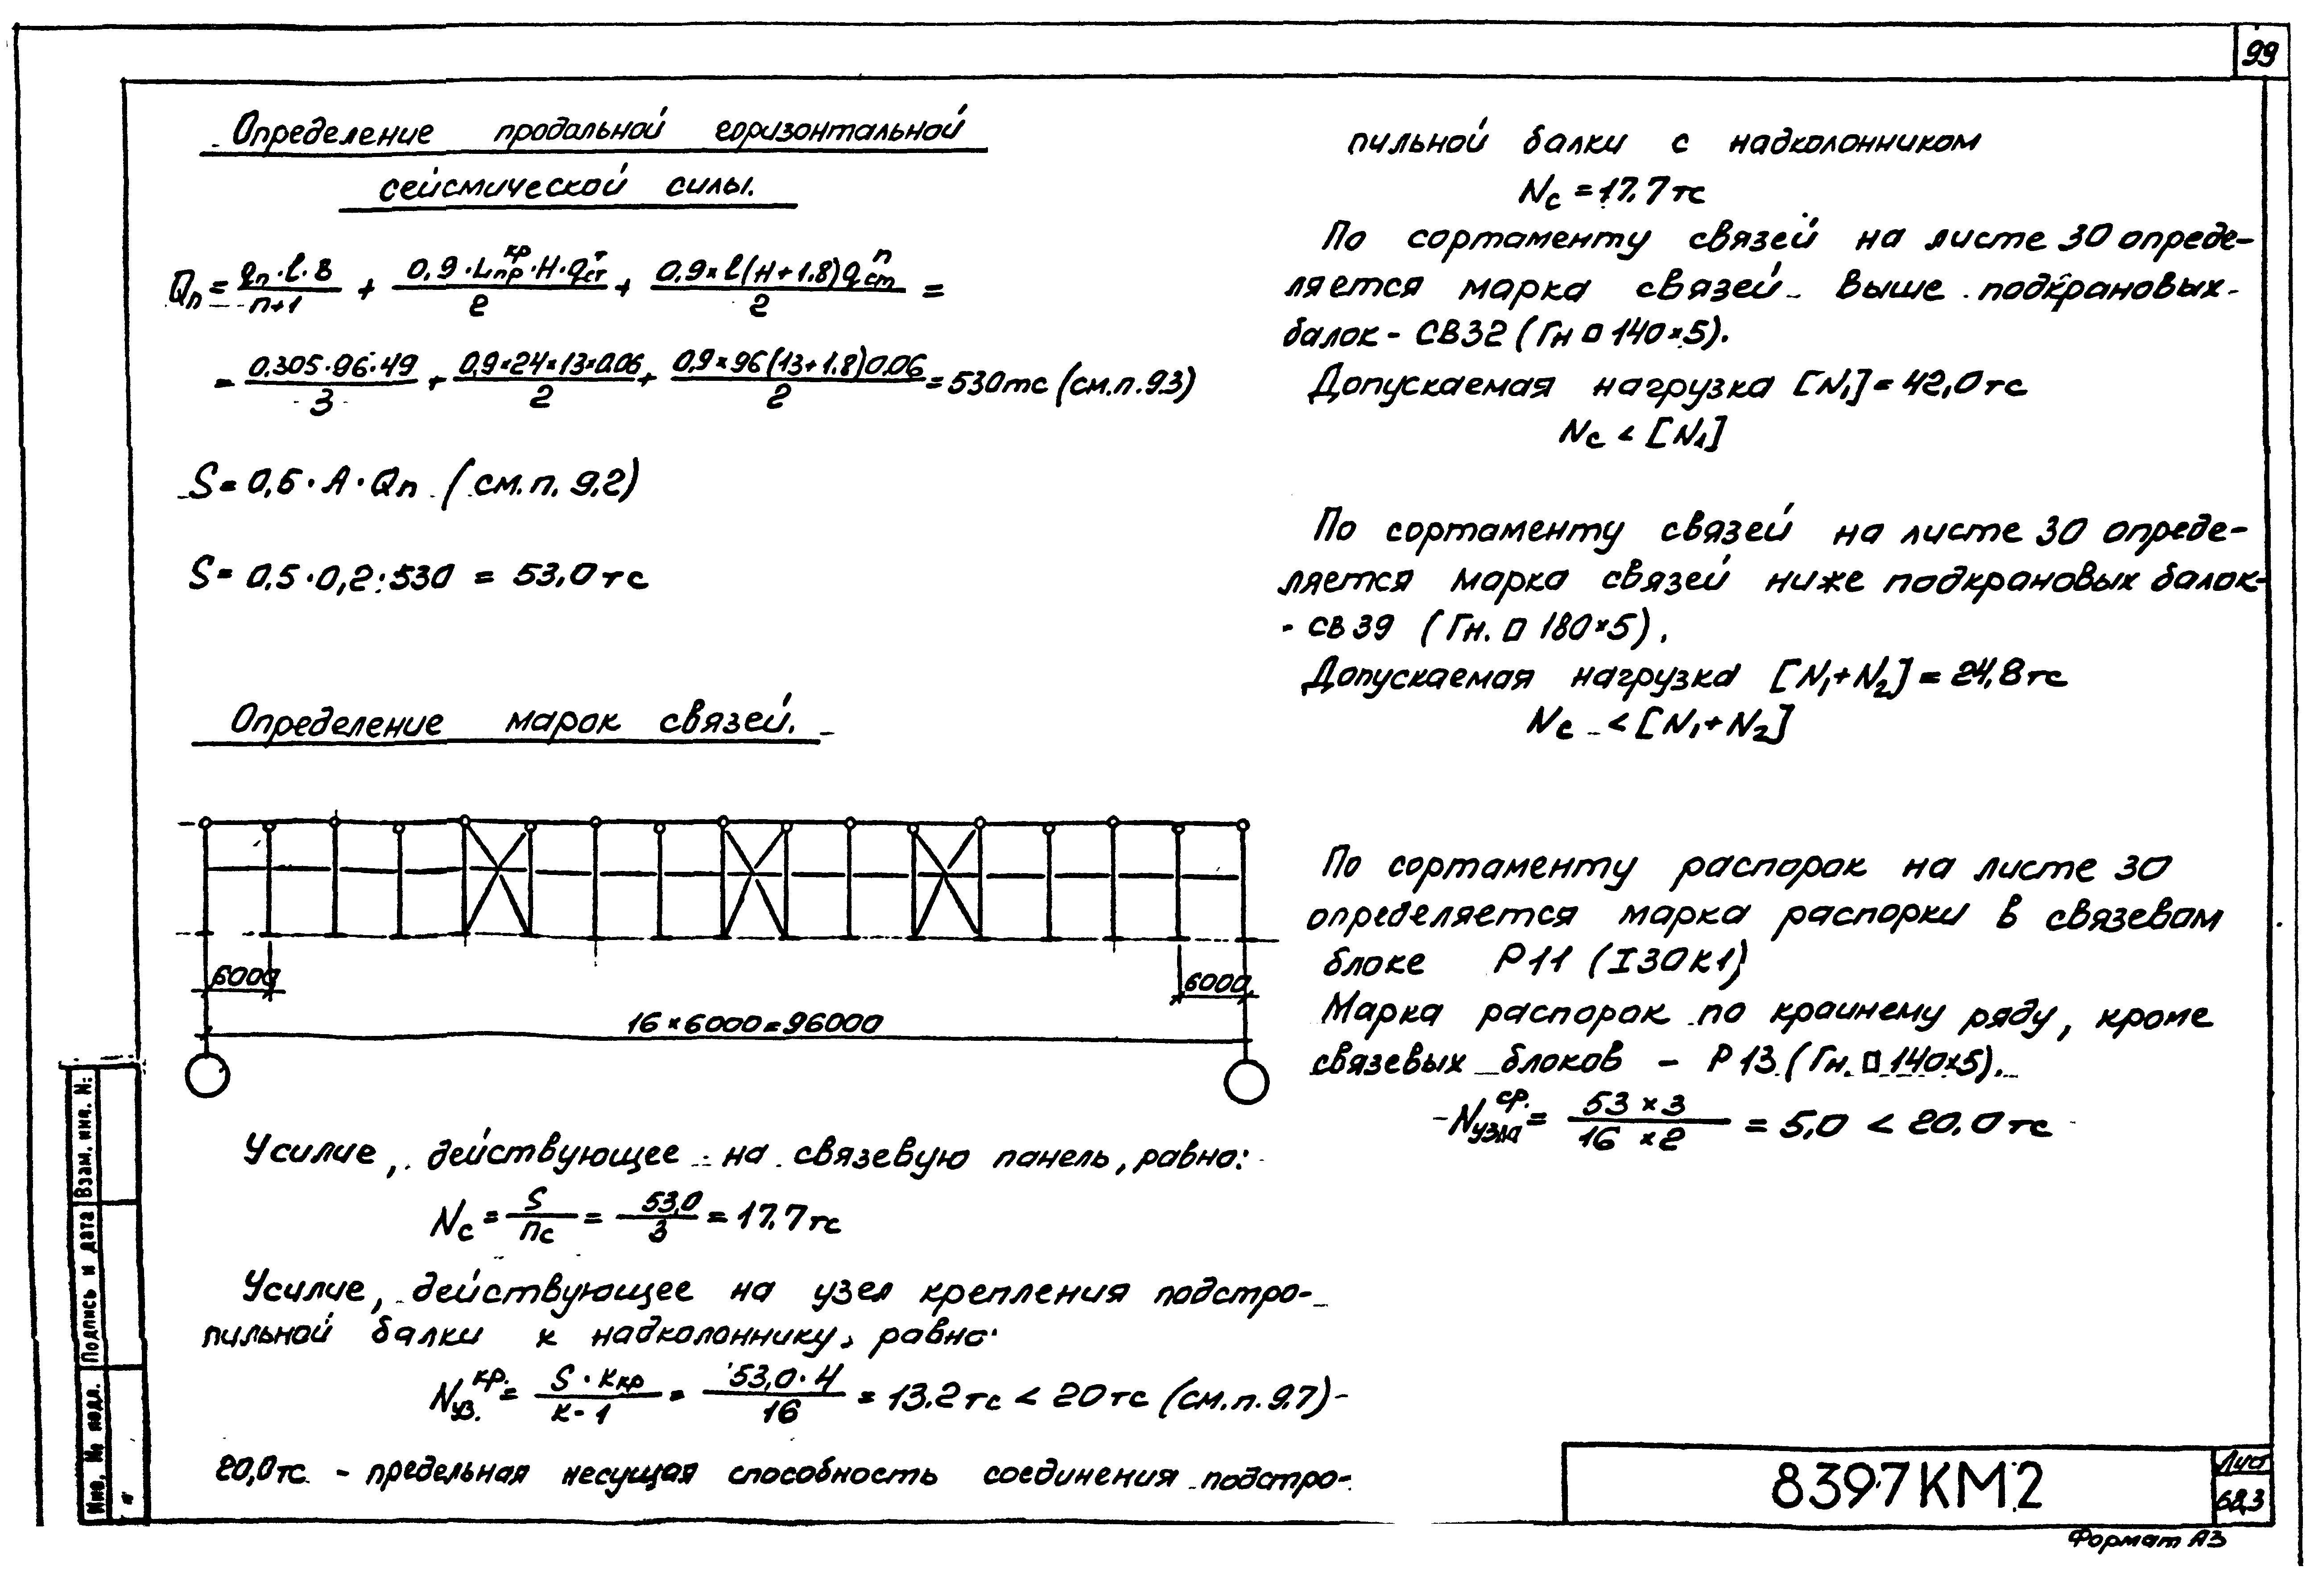 99
Определение продольной горизонтальной
сейсмической силы.
Qп = qп·l·B / n+1 + 0,9·Lпр^кр·H·qст^т / 2 + 0,9×l(H+1.8)qст^п / 2 =
= 0.305·96·49 / 3 + 0,9×24×13×0.06 / 2 + 0,9×96(13+1.8)0,06 / 2 = 530тс (см.п.9.3)
S = 0,5·A·Qп (см.п. 9,2)
S = 0,5·0,2·530 = 53,0 тс
Определение марок связей.
6000
6000
16×6000=96000
Усилие, действующее на связевую панель, равно:
Nс = S / nс = 53,0 / 3 = 17.7тс
Усилие, действующее на узел крепления подстро-
пильной балки к надколоннику, равно:
Nуз.^кр. = S·Kкр / K-1 = 53,0·4 / 16 = 13.2тс < 20тс (см.п.9.7)
20,0тс - предельная несущая способность соединения подстро-
пильной балки с надколонником
Nс = 17.7тс
По сортаменту связей на листе 30 опреде-
ляется марка связей выше подкрановых
балок - СВ32 (Гн □ 140×5).
Допускаемая нагрузка [N1] = 42,0тс
Nс < [N1]
По сортаменту связей на листе 30 опреде-
ляется марка связей ниже подкрановых балок-
- св 39 (Гн. □ 180×5).
Допускаемая нагрузка [N1+N2] = 24,8тс
Nс < [N1+N2]
По сортаменту распорок на листе 30
определяется марка распорки в связевам
блоке Р11 (I30К1)
Марка распорок по крайнему ряду, кроме
связевых блоков - Р13 (Гн. □ 140×5).
Nузла^ср. = 53×3 / 16×2 = 5,0 < 20,0тс
Взам. инв. №
Подпись и дата
Инв. № подл.
8397КМ2
Лист
68,3
Формат А3